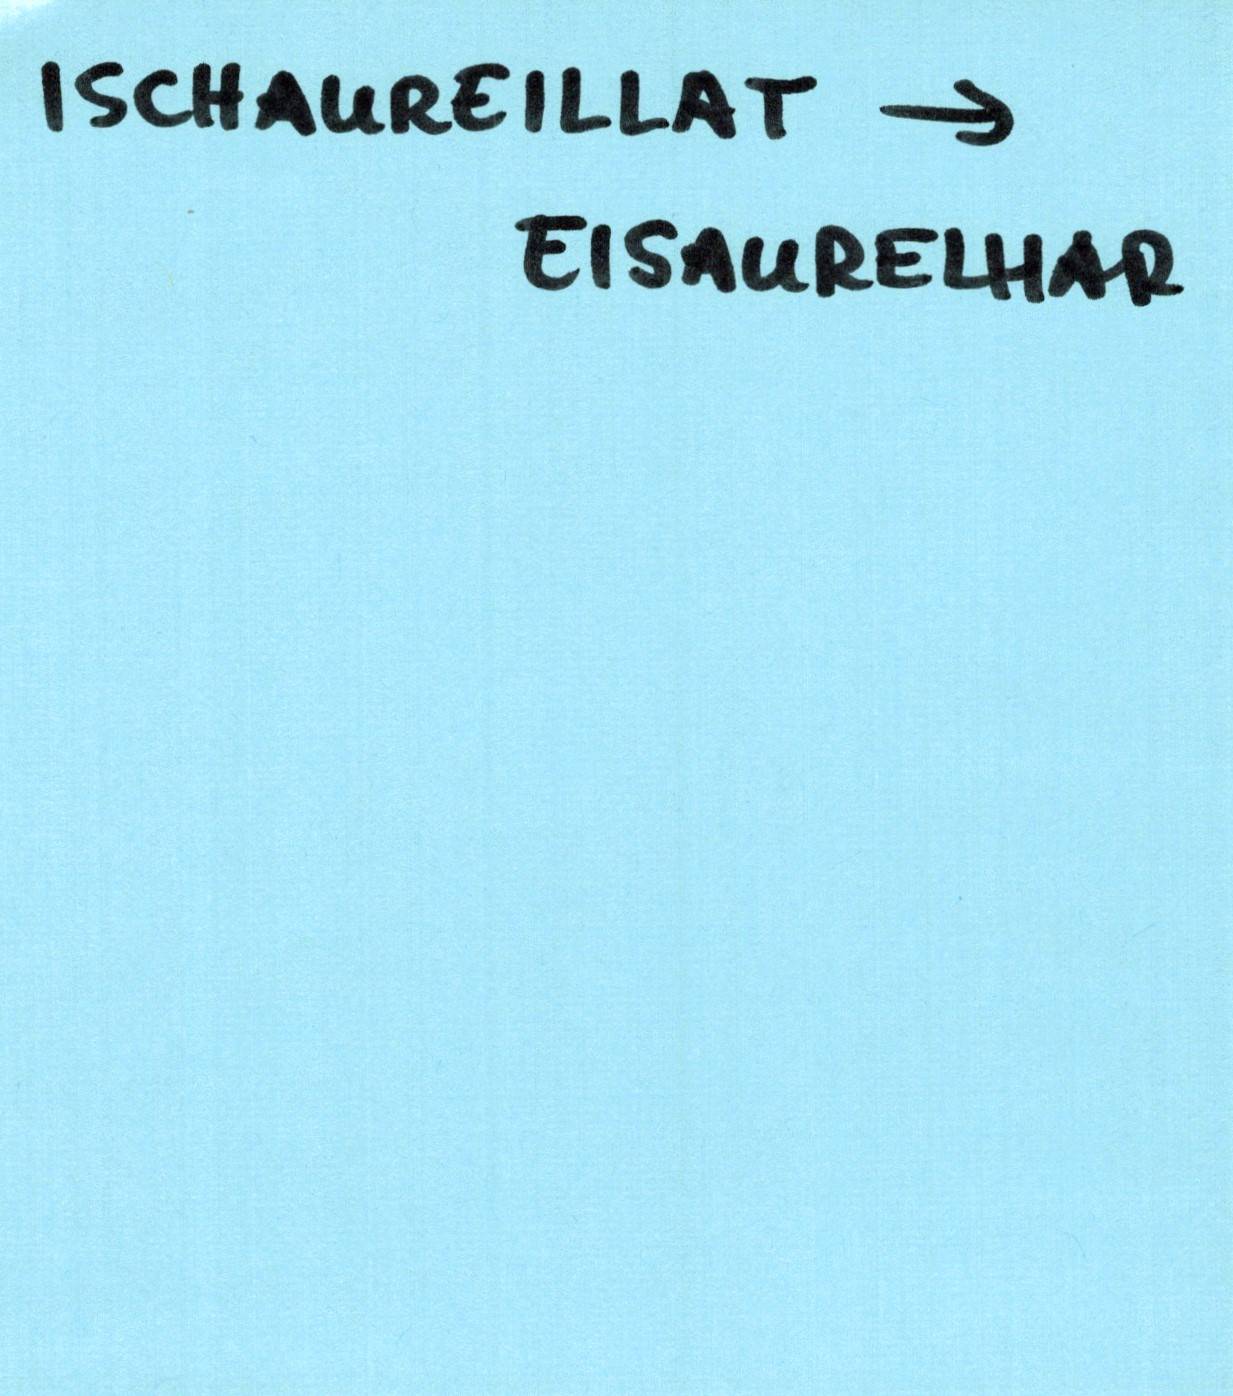 ISCHAUREILLAT →
EISAURELHAR